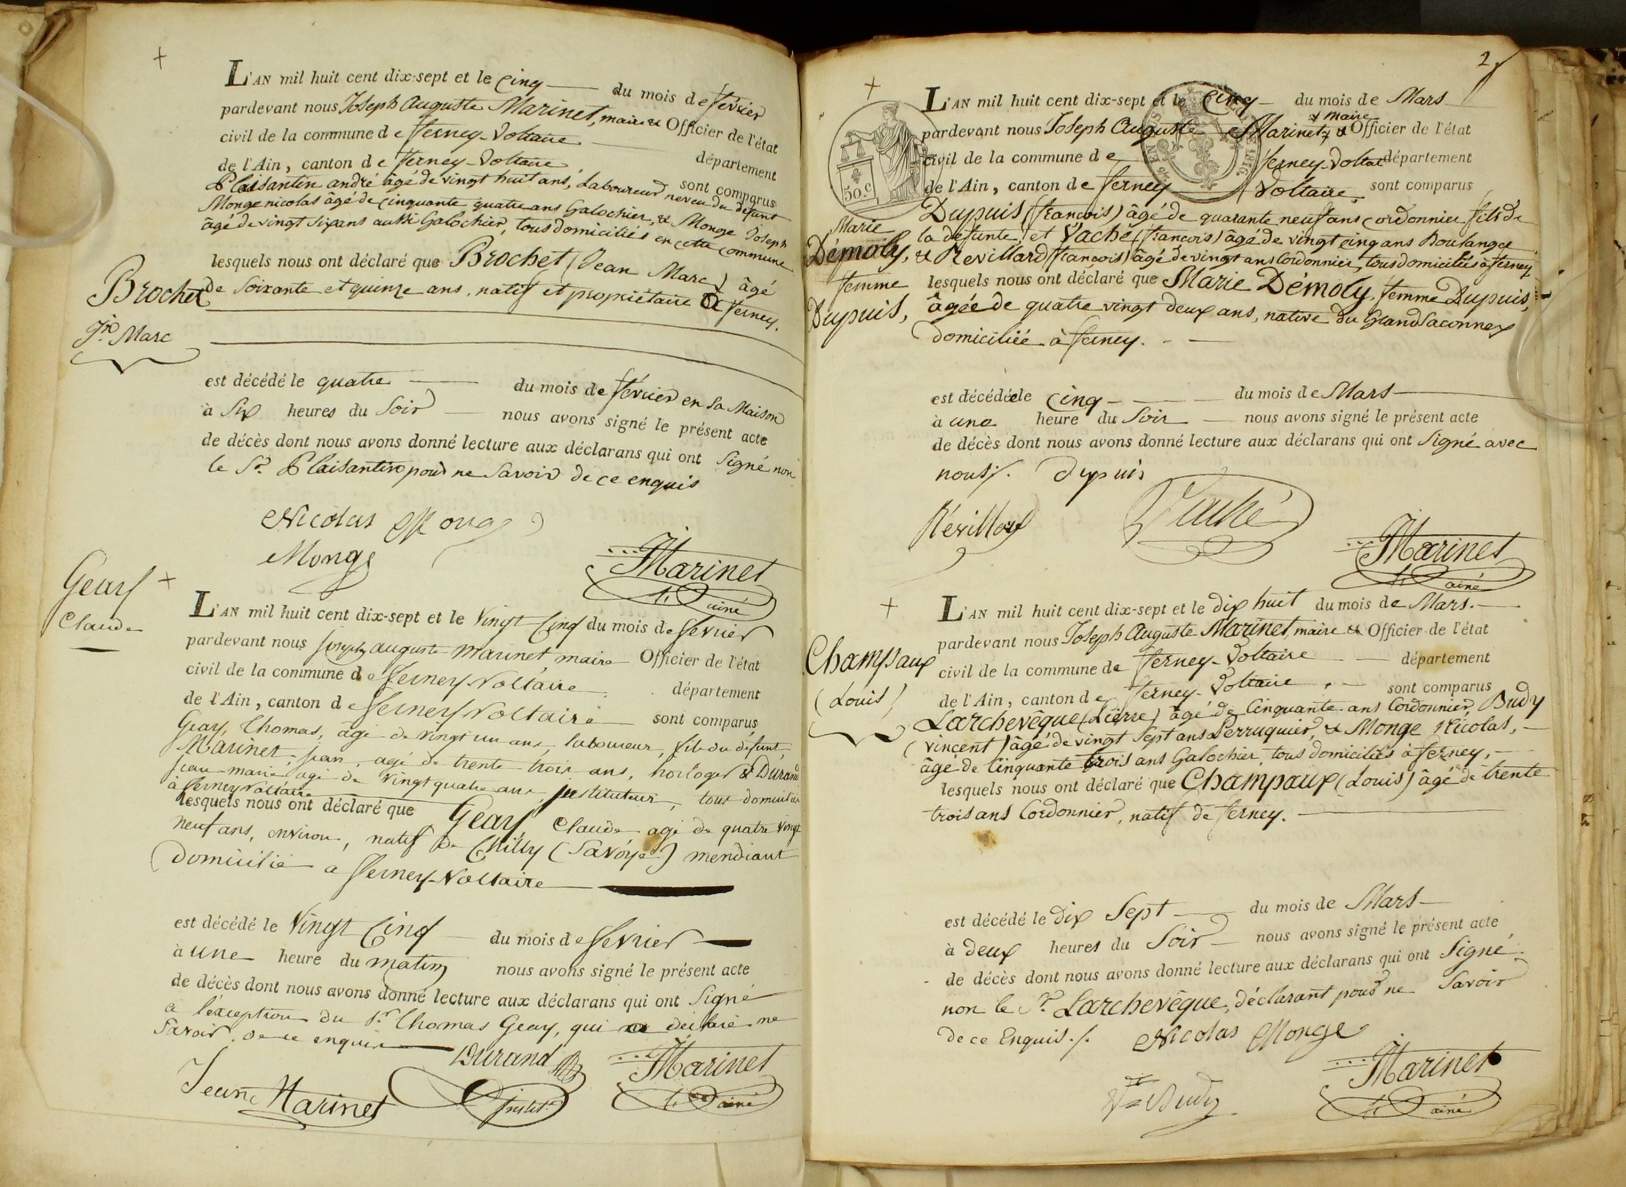 L'AN mil huit cent dix-sept et le Cinq du mois de février
pardevant nous Joseph Auguste Marinet, maire & Officier de l'état
civil de la commune de ferney-Voltaire département
de l'Ain, canton de ferney-Voltaire sont comparus
Plaisantin andré âgé de vingt huit ans, Laboureur neveu du défunt
Monge nicolas âgé de cinquante quatre ans Galochier, & Monge Joseph
âgé de vingt six ans aussi Galochier, tous domiciliés en cette commune
lesquels nous ont déclaré que Brochet (Jean Marc) âgé
de Soixante et quinze ans, natif et propriétaire à ferney.
Brochet
Jn Marc
est décédé le quatre du mois de février en sa Maison
à Six heures du Soir nous avons signé le présent acte
de décès dont nous avons donné lecture aux déclarans qui ont Signé non
le Sr. Plaisantin pour ne Savoir de ce enquis
Nicolas Monge
Monge
Marinet
ainé
Geay
Claude
L'AN mil huit cent dix-sept et le Vingt Cinq du mois de fevrier
pardevant nous joseph auguste marinet maire Officier de l'état
civil de la commune de ferney Voltaire département
de l'Ain, canton de ferney Voltaire sont comparus
Geay, Thomas, âgé de vingt un ans, laboureur, fils du défunt,
Marinet, jean, agé de trente trois ans, horloger & Durand
jean marie agé de Vingt quatre ans, Instituteur, tous domiciliés
à ferney Voltaire
lesquels nous ont déclaré que Geay Claude agé de quatre vingt
neuf ans, environ, natif de Chilly (Savoye) mendiant
domicilié a ferney-Voltaire
est décédé le Vingt Cinq du mois de fevrier
à une heure du matin nous avons signé le présent acte
de décès dont nous avons donné lecture aux déclarans qui ont Signé
a l'exception du Sr Thomas Geay, qui a déclaré ne
Savoir de ce enquis
Durand
Instit.
Jean Marinet
Marinet
ainé
2
50 c
L'AN mil huit cent dix-sept et le Cinq du mois de Mars
pardevant nous Joseph Auguste Marinet, & maire & Officier de l'état
civil de la commune de ferney-Voltaire département
de l'Ain, canton de ferney Voltaire, sont comparus
Dupuis (françois) âgé de quarante neuf ans cordonnier fils de
la défunte, et Vaché (françois) âgé de vingt cinq ans Boulanger
& Revillard (françois) âgé de vingt ans Cordonnier, tous domiciliés à ferney,
lesquels nous ont déclaré que Marie Démoly, femme Dupuis,
âgée de quatre vingt deux ans, native du Grand Saconnex
domiciliée à ferney.
Marie
Démoly,
femme
Dupuis,
est décédée le Cinq du mois de Mars
à une heure du Soir nous avons signé le présent acte
de décès dont nous avons donné lecture aux déclarans qui ont Signé avec
nous./. dupuis
Vaché
Marinet
ainé
Champaux
(Louis)
L'AN mil huit cent dix-sept et le dix huit du mois de Mars.
pardevant nous Joseph Auguste Marinet, maire & Officier de l'état
civil de la commune de ferney-Voltaire département
de l'Ain, canton de ferney-Voltaire, sont comparus
Larchevêque (Pierre) âgé de Cinquante ans Cordonnier, Budy
(vincent) âgé de vingt Sept ans Perruquier, & Monge Nicolas,
âgé de Cinquante trois ans Galochier, tous domiciliés à ferney,
lesquels nous ont déclaré que Champaux (Louis) âgé de trente
trois ans Cordonnier, natif de ferney.
est décédé le dix Sept du mois de Mars
à deux heures du Soir nous avons signé le présent acte
de décès dont nous avons donné lecture aux déclarans qui ont Signé
non le Sr. Larchevêque, déclarant pour ne Savoir
de ce Enquis./. Nicolas Monge
Budy
Marinet
ainé